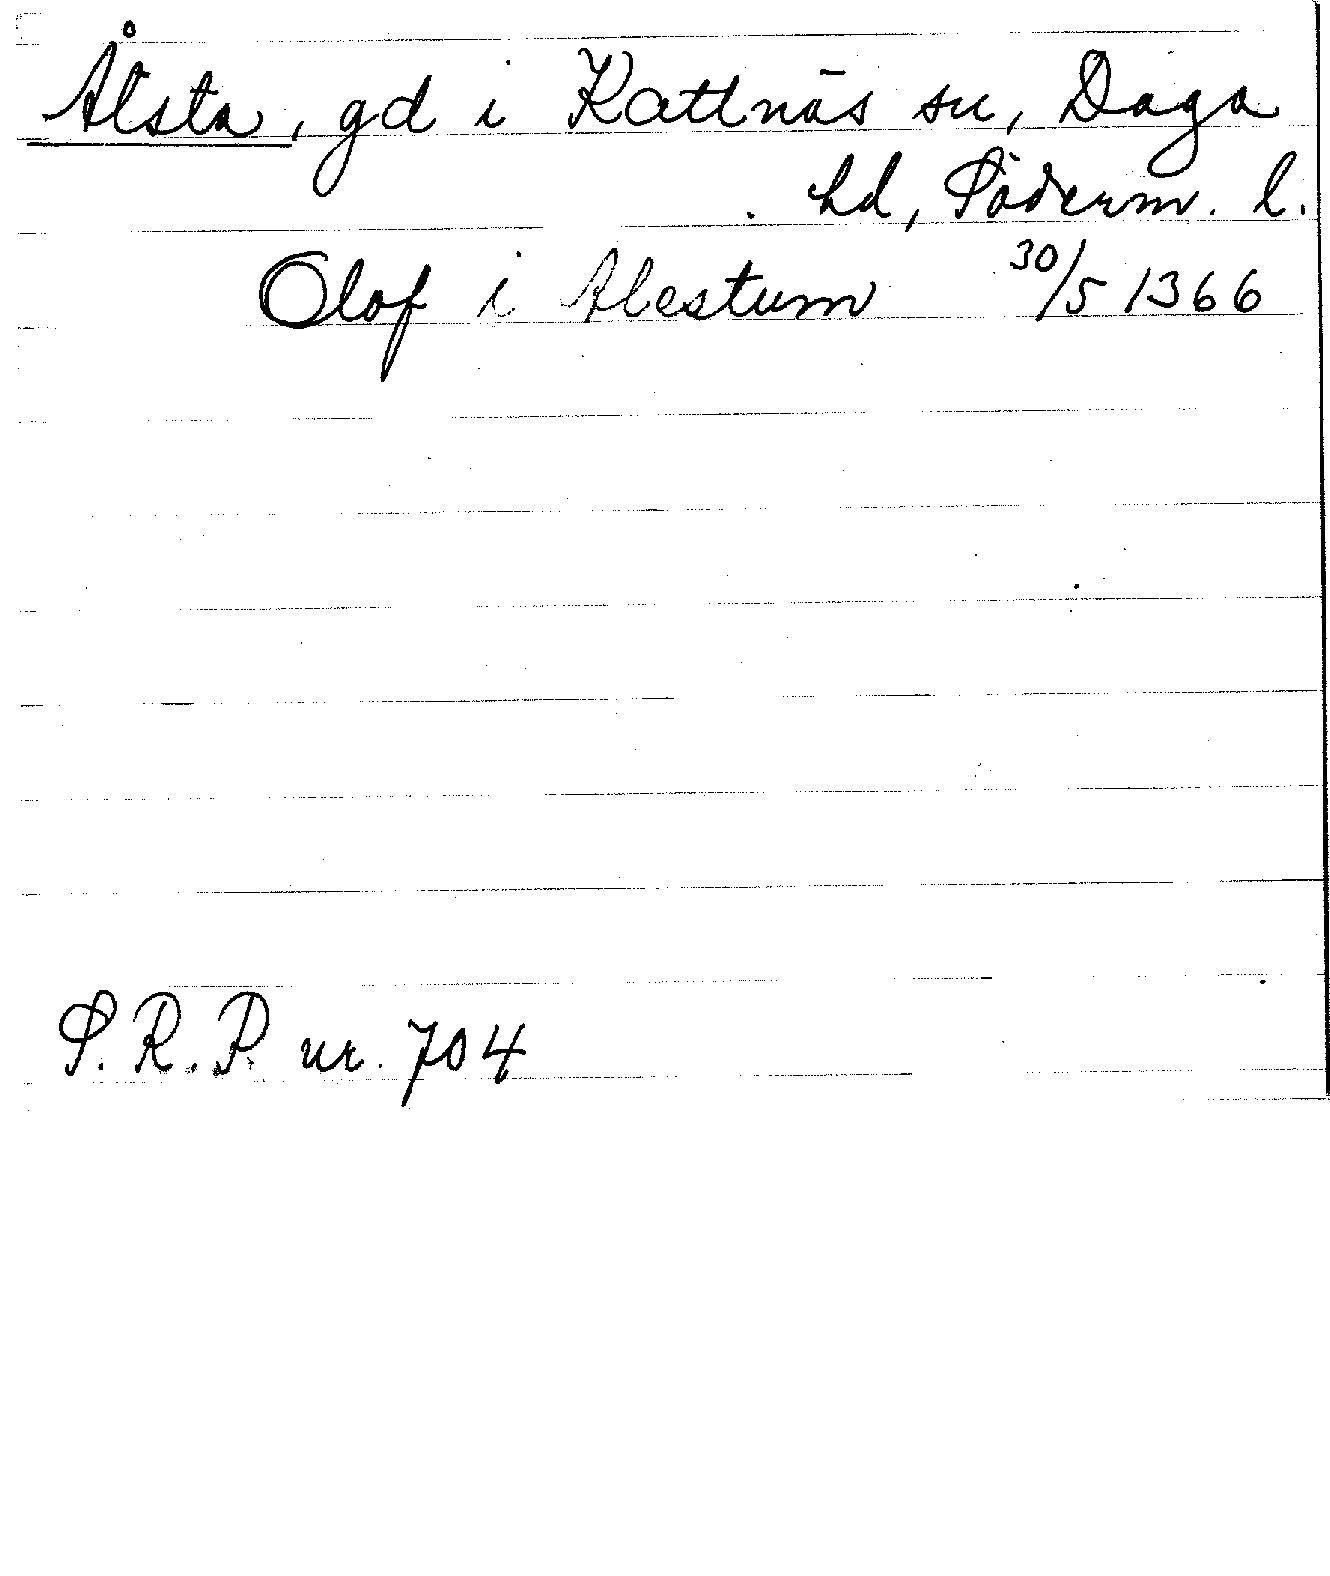 Ålsta, gd i Kattnäs sn, Daga
hd, Söderm. l.
Olof i Alestum 30/5 1366
S. R. P. nr. 704